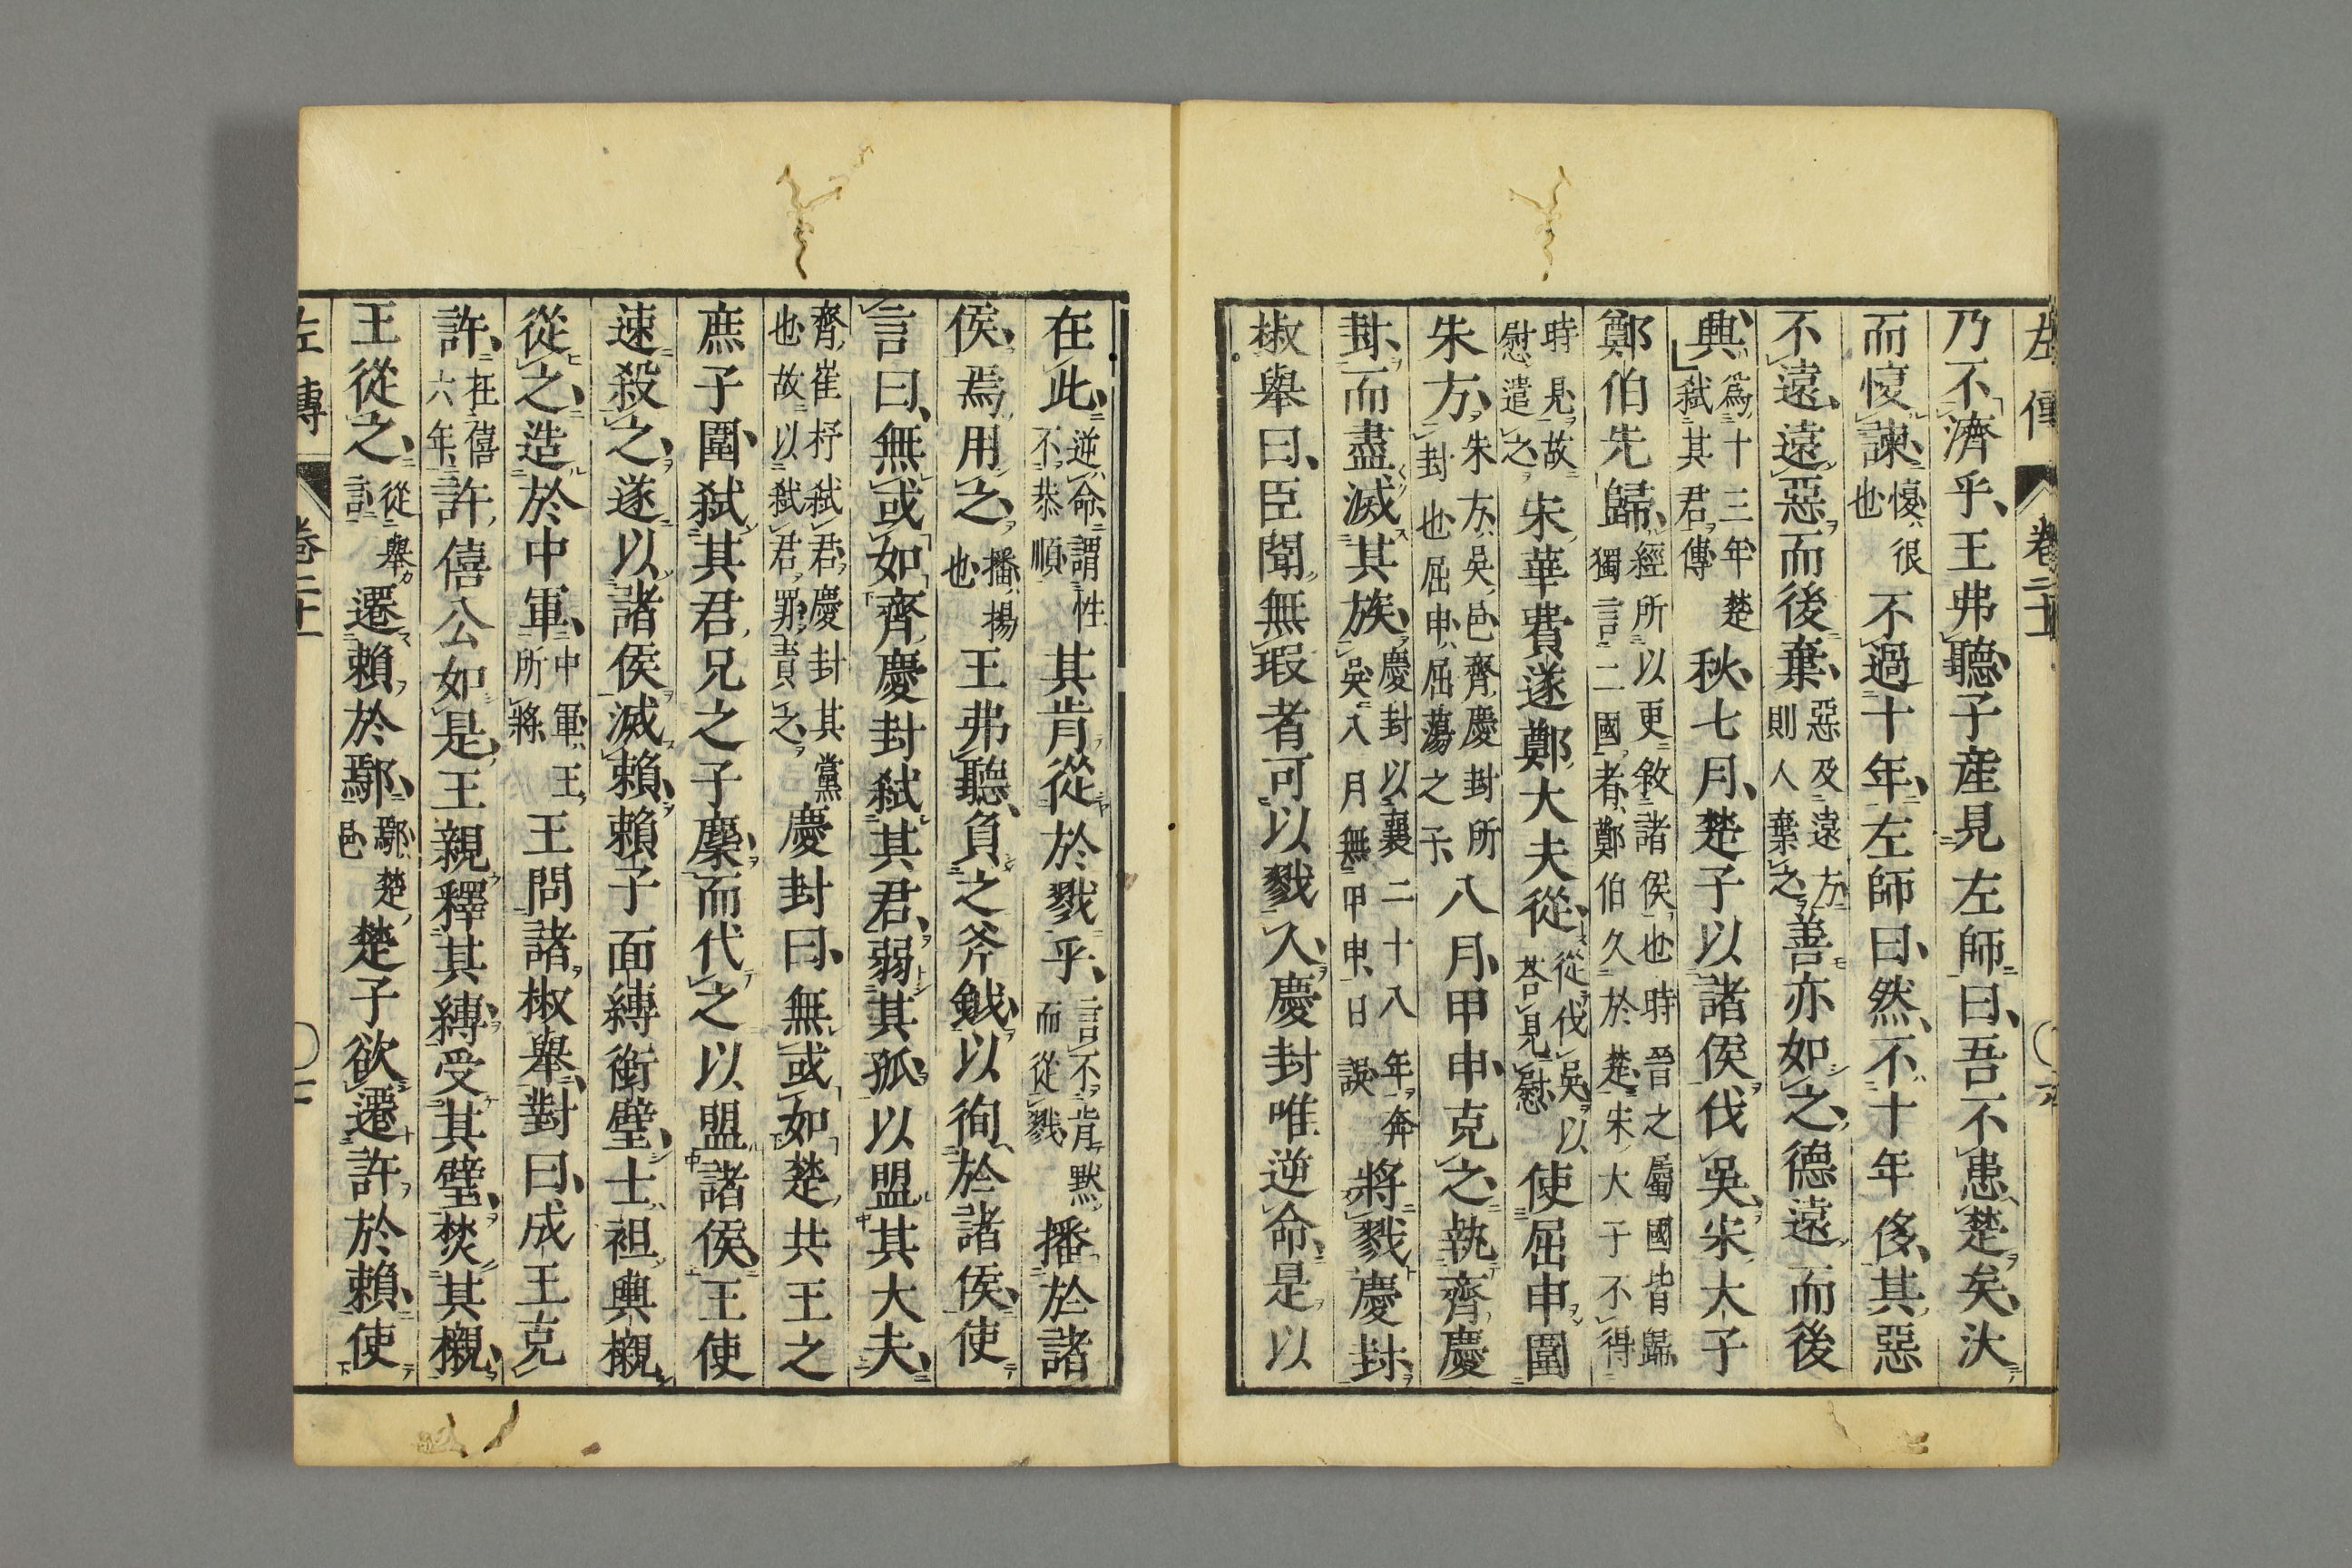 左傳 卷二十一
乃不濟乎、王弗聽、子產見左師曰、吾不患楚矣、汰
而愎諫、愎、很也不過十年、左師曰、然、不十年侈、其惡
不遠、遠惡而後棄、惡及遠方則人棄之善亦如之、德遠而後
興、爲十三年楚弑其君傳秋、七月、楚子以諸侯伐吳、宋大子
鄭伯先歸、經所以更敘諸侯也時晉之屬國皆歸獨言二國者、鄭伯久於楚宋大子不得
時見故慰遣之宋華費遂鄭大夫從、從伐吳以荅見慰使屈申圍
朱方、朱方、吳邑齊慶封所封也屈申、屈蕩之子、八月、甲申、克之、執齊慶
封、而盡滅其族、慶封以襄二十八年奔吳、八月無甲申、日誤將戮慶封、
椒舉曰、臣聞、無瑕者可以戮人、慶封唯逆命、是以
在此、逆命謂性不恭順其肯從於戮乎、言不肯默而從戮播於諸
侯、焉用之、播揚也王弗聽、負之斧鉞、以徇於諸侯、使
言曰、無或如齊慶封弑其君、弱其孤、以盟其大夫、
齊崔杼弑君、慶封其黨也故以弑君罪責之慶封曰、無或如楚共王之
庶子圍、弑其君、兄之子麇、而代之以盟諸侯、王使
速殺之、遂以諸侯滅賴、賴子面縛銜璧、士袒輿櫬
從之、造於中軍、中軍、王所將王問諸椒舉、對曰、成王克
許、在僖六年、許僖公如是、王親釋其縛、受其璧、焚其櫬、
王從之、從舉言遷賴於鄢、鄢、楚邑楚子欲遷許於賴、使
左傳 卷二十一